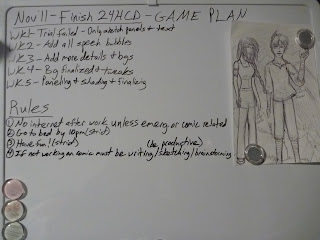 Nov 11 - Finish 24HCD - GAME PLAN
WK1 - Trial failed - Only sketch panels + text
WK2 - Add all speech bubbles
WK3 - Add more details + bgs
WK4 - Bg finalized + tweaks
WK5 - Paneling + shading + finalizing
Rules
1) No internet after work unless emerg. or comic related
2) Go to bed by 10pm (strict)
3) Have fun! (strict) (be productive)
4) If not working on comic must be writing/sketching/brainstorming